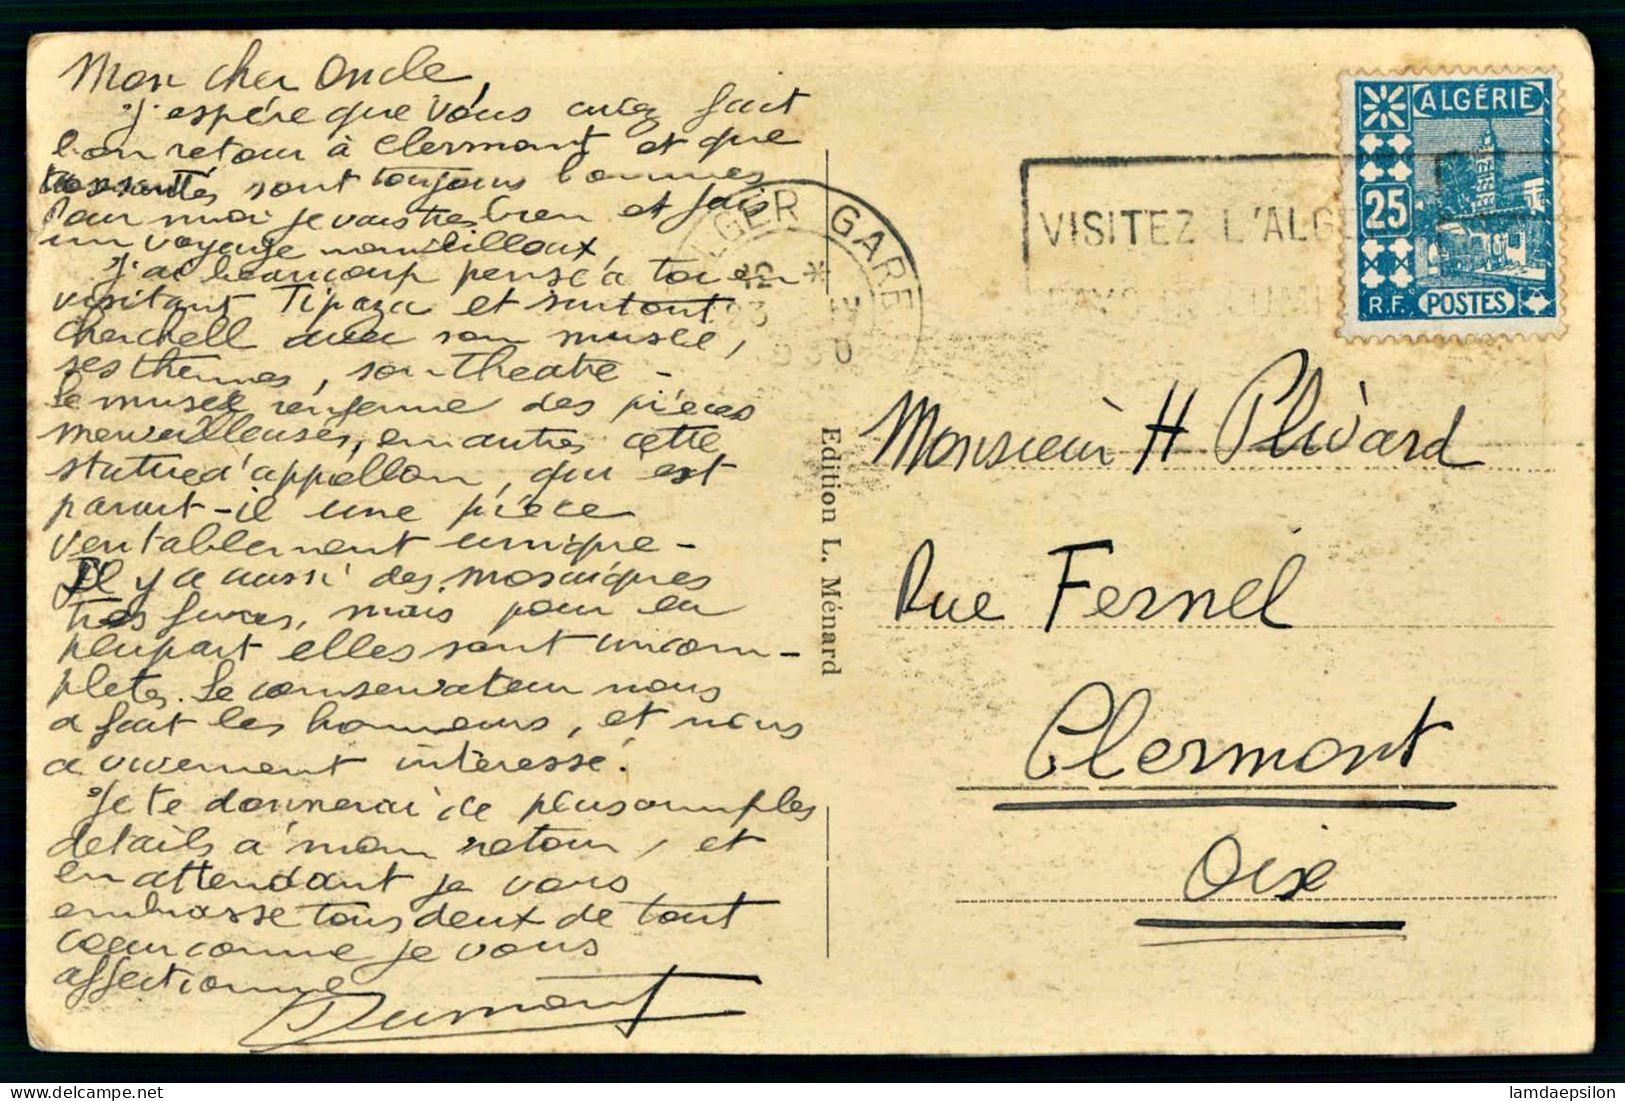 Mon cher Oncle,
J'espére que vous avez fait
bon retour à Clermont et que
santés sont toujours bonnes
Pour moi je vais tres bien et fais
un voyage
J'ai beaucoup pensé à toi en
visitant Tipaza et surtout
Cherchell avec son musée,
ses thermes, son theatre -
le musée renferme des pièces
merveilleuses, en autres cette
statue d'appollon, qui est
parait-il une pièce
veritablement unique -
Il y a aussi des mosaiques
tres, mais pour la
plupart elles sont incom-
pletes. Le conservateur nous
a fait les honneurs, et nous
a vivement intéressé.
Je te donnerai de plus amples
details à mon retour, et
en attendant je vous
embrasse tous deux de tout
cœur comme je vous
affectionne
Dumont
ALGER GARE
VISITEZ L'ALGE
ALGÉRIE
25
R.F. POSTES
Edition L. Ménard
Monsieur H Plivard
Rue Fernel
Clermont
Oise
© delcampe.net
lamdaepsilon